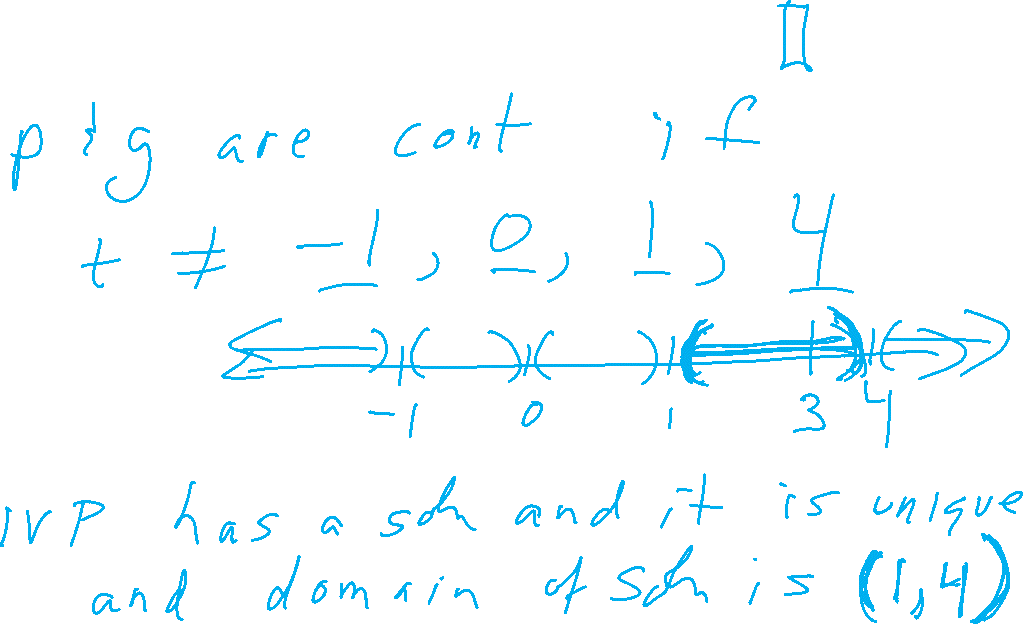 p & g are cont if
t ≠ -1, 0, 1, 4
-1 0 1 3 4
IVP has a soln and it is unique
and domain of soln is (1,4)